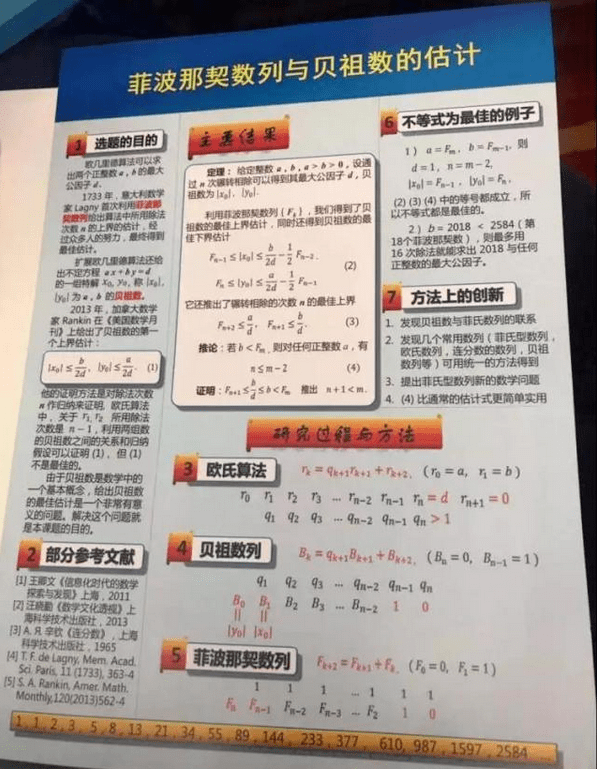 菲波那契数列与贝祖数的估计
1 选题的目的
欧几里德算法可以求
出两个正整数 a, b 的最大
公因子 d.
1733 年，意大利数学
家 Lagny 首次利用菲波那
契数列给出算法中所用除法
次数 n 的上界的估计，经
过众多人的努力，最终得到
最佳估计。
扩展欧几里德算法还给
出不定方程 ax + by = d
的一组特解 x₀, y₀, 称 |x₀|,
|y₀| 为 a, b 的贝祖数。
2013 年，加拿大数学
家 Rankin 在《美国数学月
刊》上给出了贝祖数的第一
个上界估计：
|x₀| ≤ b/2d, |y₀| ≤ a/2d. (1)
他的证明方法是对除法次数
n 作归纳来证明, 欧氏算法
中，关于 r₁, r₂ 所用除法
次数是 n − 1，利用两组数
的贝祖数之间的关系和归纳
假设可以证明 (1)、但 (1)
不是最佳的。
由于贝祖数是数学中的
一个基本概念，给出贝祖数
的最佳估计是一个非常有意
义的问题。解决这个问题就
是本课题的目的。
2 部分参考文献
[1] 王卿文《信息化时代的数学
探索与发现》上海，2011
[2] 汪晓勤《数学文化透视》上
海科学技术出版社，2013
[3] А. Я. 辛钦《连分数》，上海
科学技术出版社，1965
[4] T. F. de Lagny, Mem. Acad.
Sci. Paris, 11 (1733), 363-4
[5] S. A. Rankin, Amer. Math.
Monthly,120(2013)562-4
主要结果
定理：给定整数 a, b, a > b > 0，设通
过 n 次辗转相除可以得到其最大公因子 d，贝
祖数为 |x₀|, |y₀|.
利用菲波那契数列 {Fₖ}，我们得到了贝
祖数的最佳上界估计，同时还得到贝祖数的最
佳下界估计
Fₙ₋₁ ≤ |x₀| ≤ b/2d − 1/2 Fₙ₋₂.
(2)
Fₙ ≤ |y₀| ≤ a/2d − 1/2 Fₙ₋₁
它还推出了辗转相除的次数 n 的最佳上界
Fₙ₊₂ ≤ a/d, Fₙ₊₁ ≤ b/d. (3)
推论：若 b < Fₘ, 则对任何正整数 a，有
n ≤ m − 2 (4)
证明：Fₙ₊₁ ≤ b/d ≤ b < Fₘ 推出 n + 1 < m.
6 不等式为最佳的例子
1）a = Fₘ, b = Fₘ₋₁, 则
d = 1, n = m − 2,
|x₀| = Fₙ₋₁, |y₀| = Fₙ,
(2) (3) (4) 中的等号都成立，所
以不等式都是最佳的。
2）b = 2018 < 2584（第
18个菲波那契数），则最多用
16 次除法就能求出 2018 与任何
正整数的最大公因子。
7 方法上的创新
1. 发现贝祖数与菲氏数列的联系
2. 发现几个常用数列（菲氏型数列，
欧氏数列，连分数的数列，贝祖
数列等）可用统一的方法得到
3. 提出菲氏型数列新的数学问题
4. (4) 比通常的估计式更简单实用
研究过程与方法
3 欧氏算法 rₖ = qₖ₊₁rₖ₊₁ + rₖ₊₂,（r₀ = a, r₁ = b）
r₀ r₁ r₂ r₃ ... rₙ₋₂ rₙ₋₁ rₙ = d rₙ₊₁ = 0
q₁ q₂ q₃ ... qₙ₋₂ qₙ₋₁ qₙ > 1
4 贝祖数列 Bₖ = qₖ₊₁Bₖ₊₁ + Bₖ₊₂,（Bₙ = 0, Bₙ₋₁ = 1）
q₁ q₂ q₃ ... qₙ₋₂ qₙ₋₁ qₙ
B₀ B₁ B₂ B₃ ... Bₙ₋₂ 1 0
|| ||
|y₀| |x₀|
5 菲波那契数列 Fₖ₊₂ = Fₖ₊₁ + Fₖ,（F₀ = 0, F₁ = 1）
1 1 1 ... 1 1 1
Fₙ Fₙ₋₁ Fₙ₋₂ Fₙ₋₃ ... F₂ 1 0
1, 1, 2, 3, 5, 8, 13, 21, 34, 55, 89, 144, 233, 377, 610, 987, 1597, 2584 ...